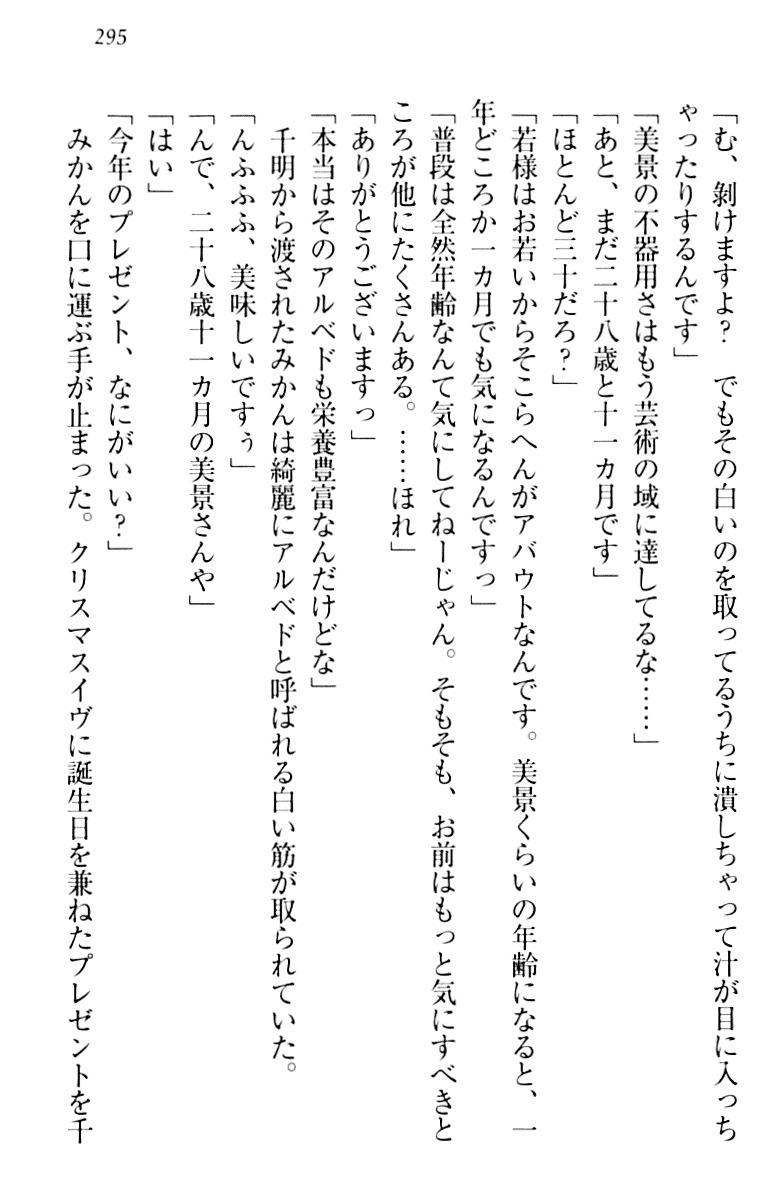 295
「む、剝けますよ?　でもその白いのを取ってるうちに潰しちゃって汁が目に入っち
ゃったりするんです」
「美景の不器用さはもう芸術の域に達してるな……」
「あと、まだ二十八歳と十一カ月です」
「ほとんど三十だろ?」
「若様はお若いからそこらへんがアバウトなんです。美景くらいの年齢になると、一
年どころか一カ月でも気になるんですっ」
「普段は全然年齢なんて気にしてねーじゃん。そもそも、お前はもっと気にすべきと
ころが他にたくさんある。……ほれ」
「ありがとうございますっ」
「本当はそのアルベドも栄養豊富なんだけどな」
千明から渡されたみかんは綺麗にアルベドと呼ばれる白い筋が取られていた。
「んふふふ、美味しいですぅ」
「んで、二十八歳十一カ月の美景さんや」
「はい」
「今年のプレゼント、なにがいい?」
みかんを口に運ぶ手が止まった。クリスマスイヴに誕生日を兼ねたプレゼントを千